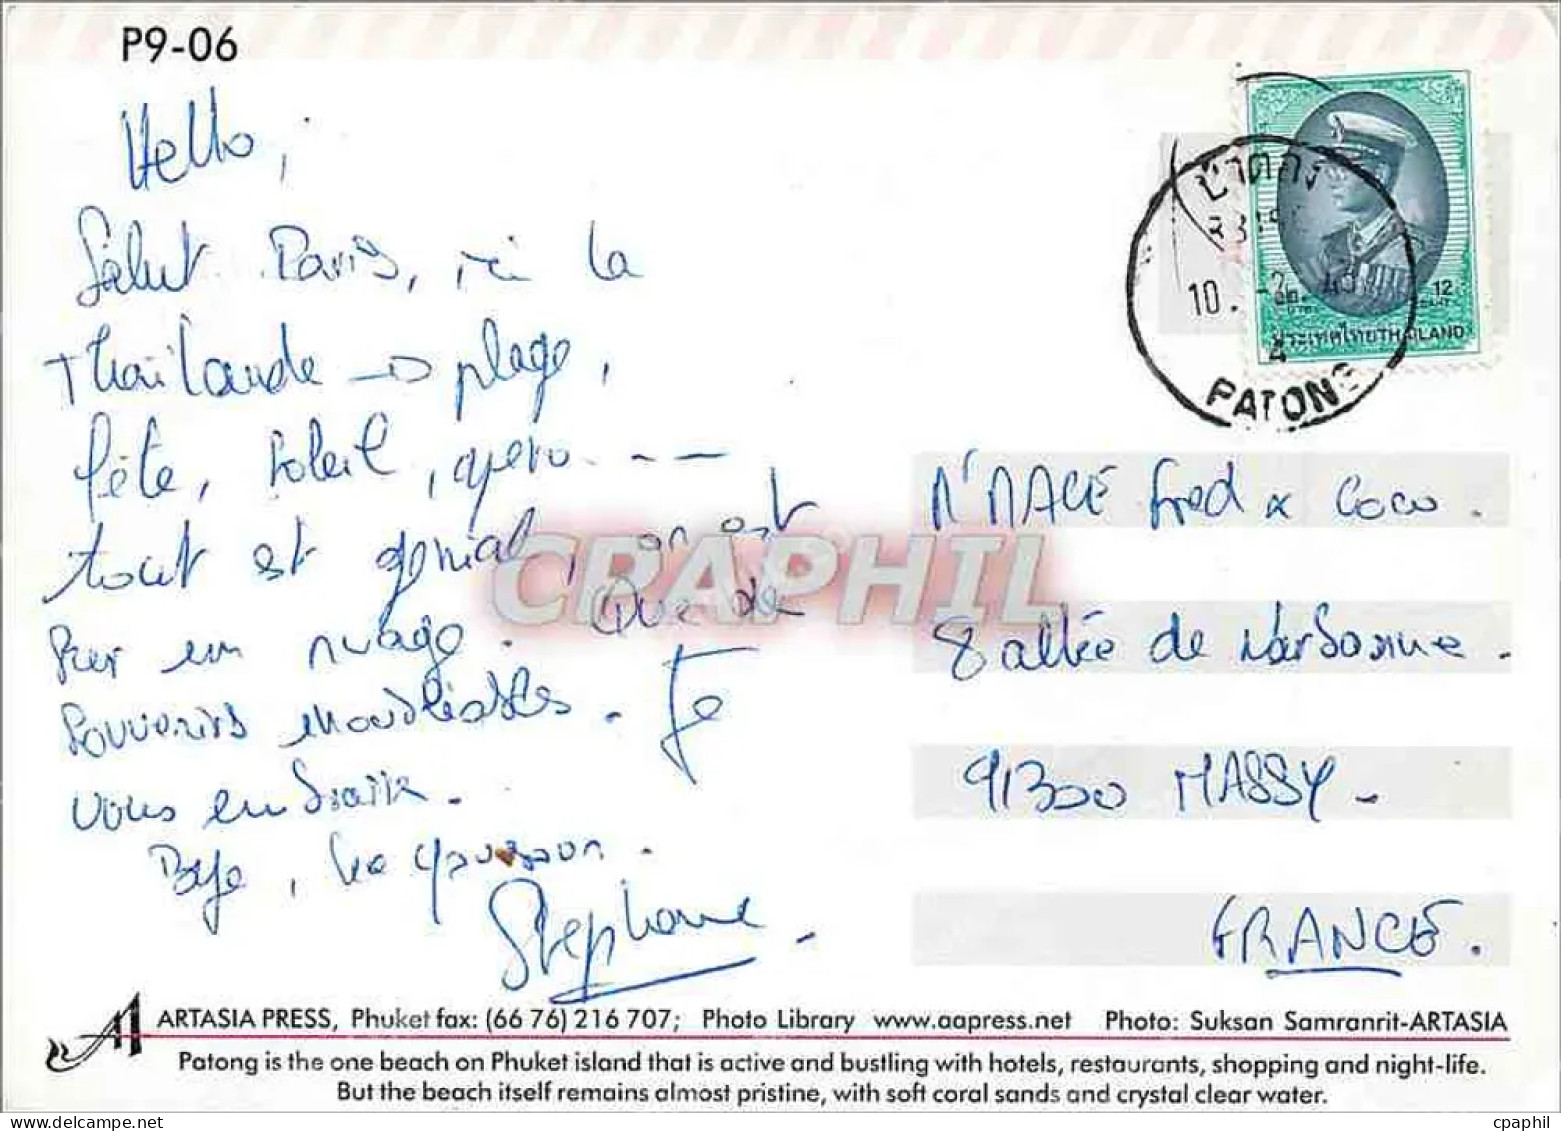 P9-06
Hello,
Salut Paris, ici la
Thaïlande → plage,
fête, soleil, apero. - - -
tout est génial, on est
sur un nuage. Que de
souvenirs inoubliables. Je
vous embrasse.
Bye,
Stephane.
ป่าตอง
10. -2. 40
A
PATONG
12
ประเทศไทย THAILAND
MACÉ Fred & Coco.
8 allée de Narbonne.
91300 MASSY.
FRANCE.
CRAPHIL
ARTASIA PRESS, Phuket fax: (66 76) 216 707; Photo Library www.aapress.net Photo: Suksan Samranrit-ARTASIA
Patong is the one beach on Phuket island that is active and bustling with hotels, restaurants, shopping and night-life.
But the beach itself remains almost pristine, with soft coral sands and crystal clear water.
cpaphil